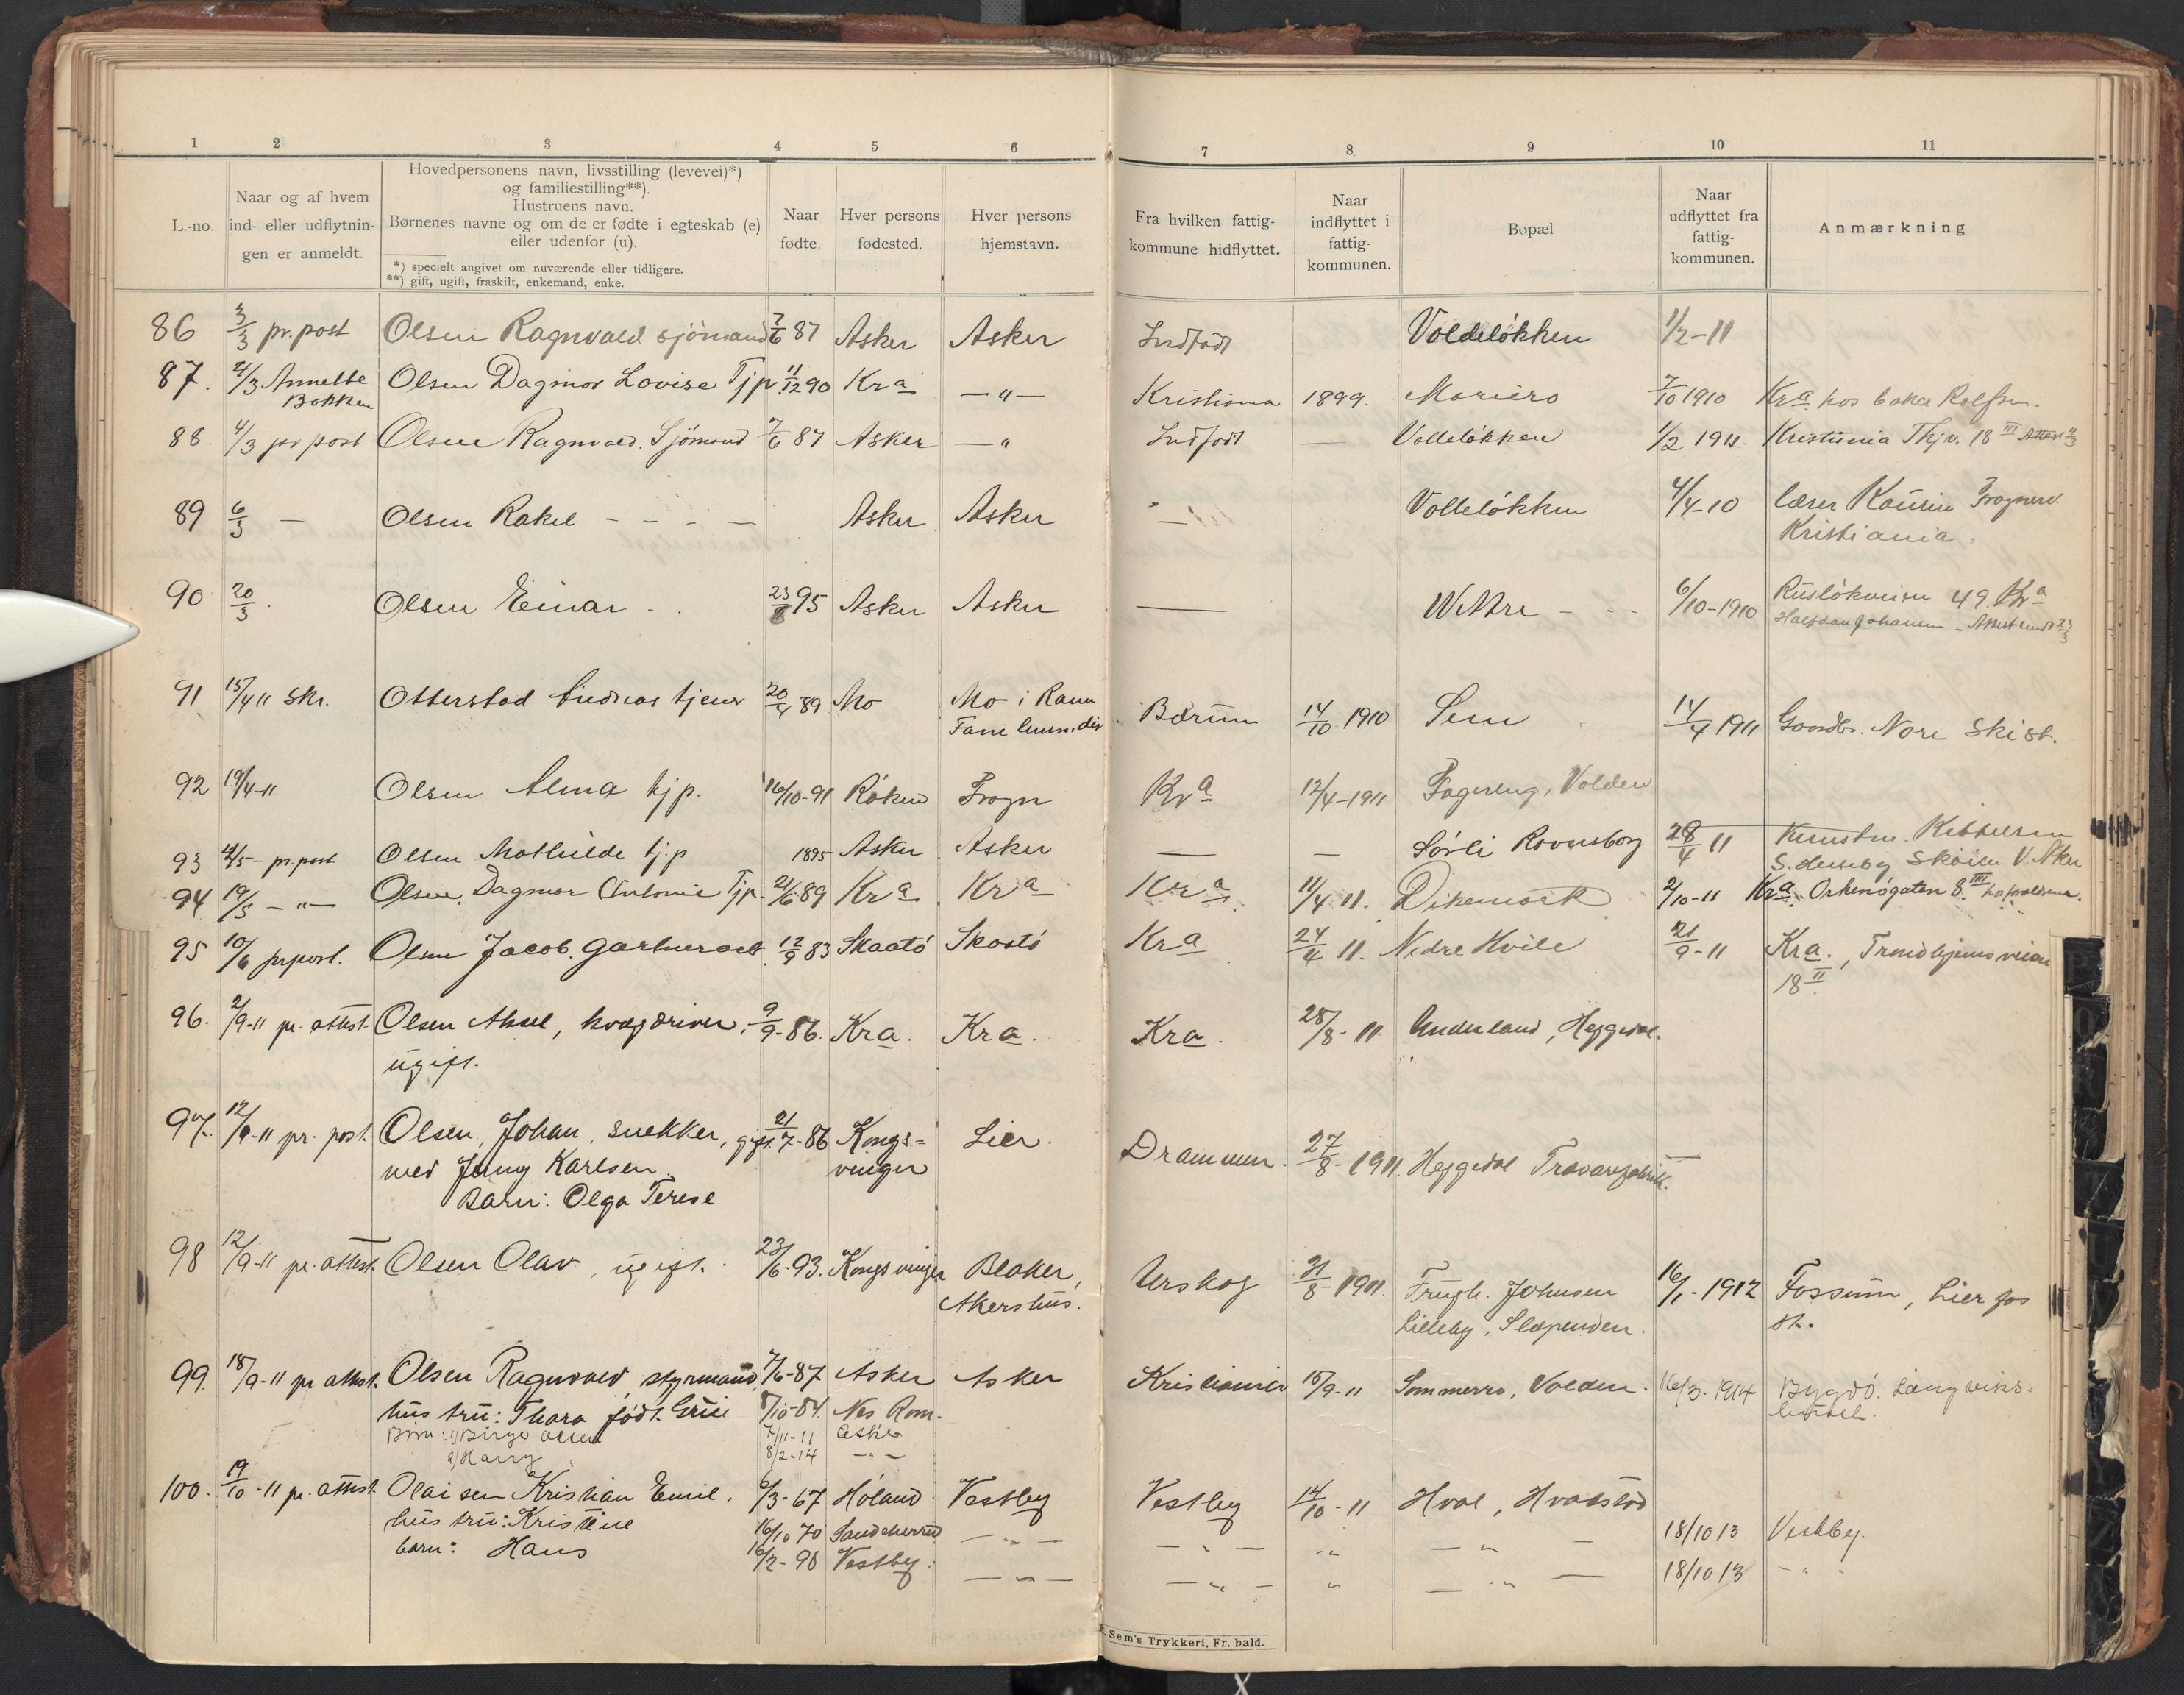 1 2 3 4 5 6 7 8 9 10 11
L.-no.
Naar og af hvem
ind- eller udflytnin-
gen er anmeldt.
Hovedpersonens navn, livsstilling (levevei)*)
og familiestilling**).
Hustruens navn.
Børnenes navne og om de er fødte i egteskab (e)
eller udenfor (u).
*) specielt angivet om nuværende eller tidligere.
**) gift, ugift, fraskilt, enkemand, enke.
Naar
fødte.
Hver persons
fødested.
Hver persons
hjemstavn.
Fra hvilken fattig-
kommune hidflyttet.
Naar
indflyttet i
fattig-
kommunen.
Bopæl
Naar
udflyttet fra
fattig-
kommunen.
Anmærkning
86 3/3 pr. post Olsen Ragnvald sjömand 7/6 87 Asker Asker Indfödt Voldeløkken 1/2-11
87. 4/3 Annette Olsen Dagmar Lovise Tjp. 11/12 90 Kra —"— Kristiania 1899. Mariero 7/10 1910 Kra hos baker Rolfsen.
Bakken
88. 4/3 pr post Olsen Ragnvald. Sjömand 7/6 87 Asker —" Indfødt — Volleløkken 1/2 1911 Kristiania Thjv. 18 III Attest 4/3
89 6/3 — Olsen Rakel - - - — Asker Asker — Volleløkken 4/4-10 læser Frognerv.
Kristiania.
90 20/3. Olsen Einar - 23/8 95 Asker Asker — Wettre - - - 6/10-1910 Rusløkveien 49. Kra
Halfdan Johansen - Attest sendt 23/3
91 15/4 11 Skr. Otterstad Andreas tjener 20/4 89 Mo Mo i Rana Bærum 14/10 1910 Sem 14/4 1911 Gaardbr. Nore Ski st.
92 19/4-11 Olsen Alma tjp. 16/10-91 Røken Frogn Kra 12/4-1911 Fagereng, Volden
93 4/5- pr. post Olsen Mathilde tj.p 1895 Asker Asker — — Sørli Ravnsborg 28/4 11 Kittelsen
S. Huseby Skøien V. Aker
94 19/5 —"— Olsen. Dagmar Antonie Tjp. 21/6 89 Kra Kra Kra. 11/4 11. Dikemark 2/10-11 Kra. Orknögaten 8. III hos forældrene.
95 10/6 pr post. Olsen Jacob. Gartnerarb. 12/9 83 Skaatö Skaatö Kra 24/4 11. Nedre Hvile 21/9-11 Kra., Trondhjemsveien
18 II
96. 2/9-11 pr. attest. Olsen Aksel, kvægdriver, 9/9-86. Kra. Kra. Kra. 28/8-11 Underland, Heggedal.
ugift.
97. 12/9-11 pr. post. Olsen, Johan, snekker, gift. 21/7-86 Kongs- Lier. Drammen. 27/8-1911. Heggedal Trævarefabrik.
med Jenny Karlsen. vinger
Barn: Olga Terese
98 12/9-11 pr. attest. Olsen Olav, ugift. 23/6-93. Kongsvinger Blaker, Urskog 31/8-1911. Frugh. Johnsen 16/1-1912 Fossum, Lier
Akershus. Lilleby, Slæpenden. st.
99. 18/9-11 pr attest. Olsen Ragnvald, styrmand, 7/6-87 Asker Asker Kristiania 15/9-11 Sommerro, Volden. 16/3-1914 Bygdö. Langviks-
hustru: Thora født. Grue 8/10-84. Nes Rom.
Børn: 1) Birger Olsen 7/11-11 Asker
2) Harry 8/2-14 —"—
100. 19/10-11 pr. attest. Olaisen Kristian Emil. 6/3-67 Høland Vestby Vestby 14/10-11 Hval, Hvalstad
hustru: Kristine 16/10 70 —"— —"— " —"— 18/10 13 Vestby.
barn: Hans 16/2-98 Vestby. —"— —"— " —"— 18/10 13 -"-
Sem's Trykkeri, Fr. hald.